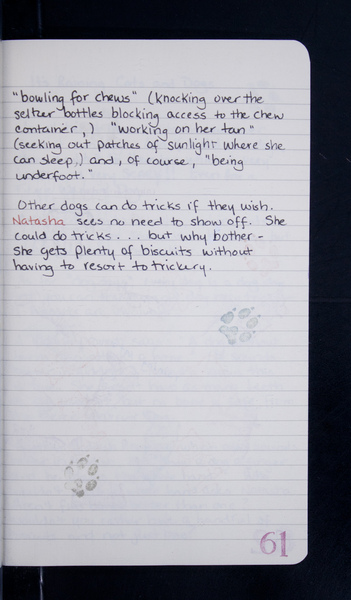 "bowling for chews" (knocking over the
seltzer bottles blocking access to the chew
container,) "working on her tan"
(seeking out patches of sunlight where she
can sleep,) and, of course, "being
underfoot."
Other dogs can do tricks if they wish.
Natasha sees no need to show off. She
could do tricks... but why bother -
She gets plenty of biscuits without
having to resort to trickery.
61